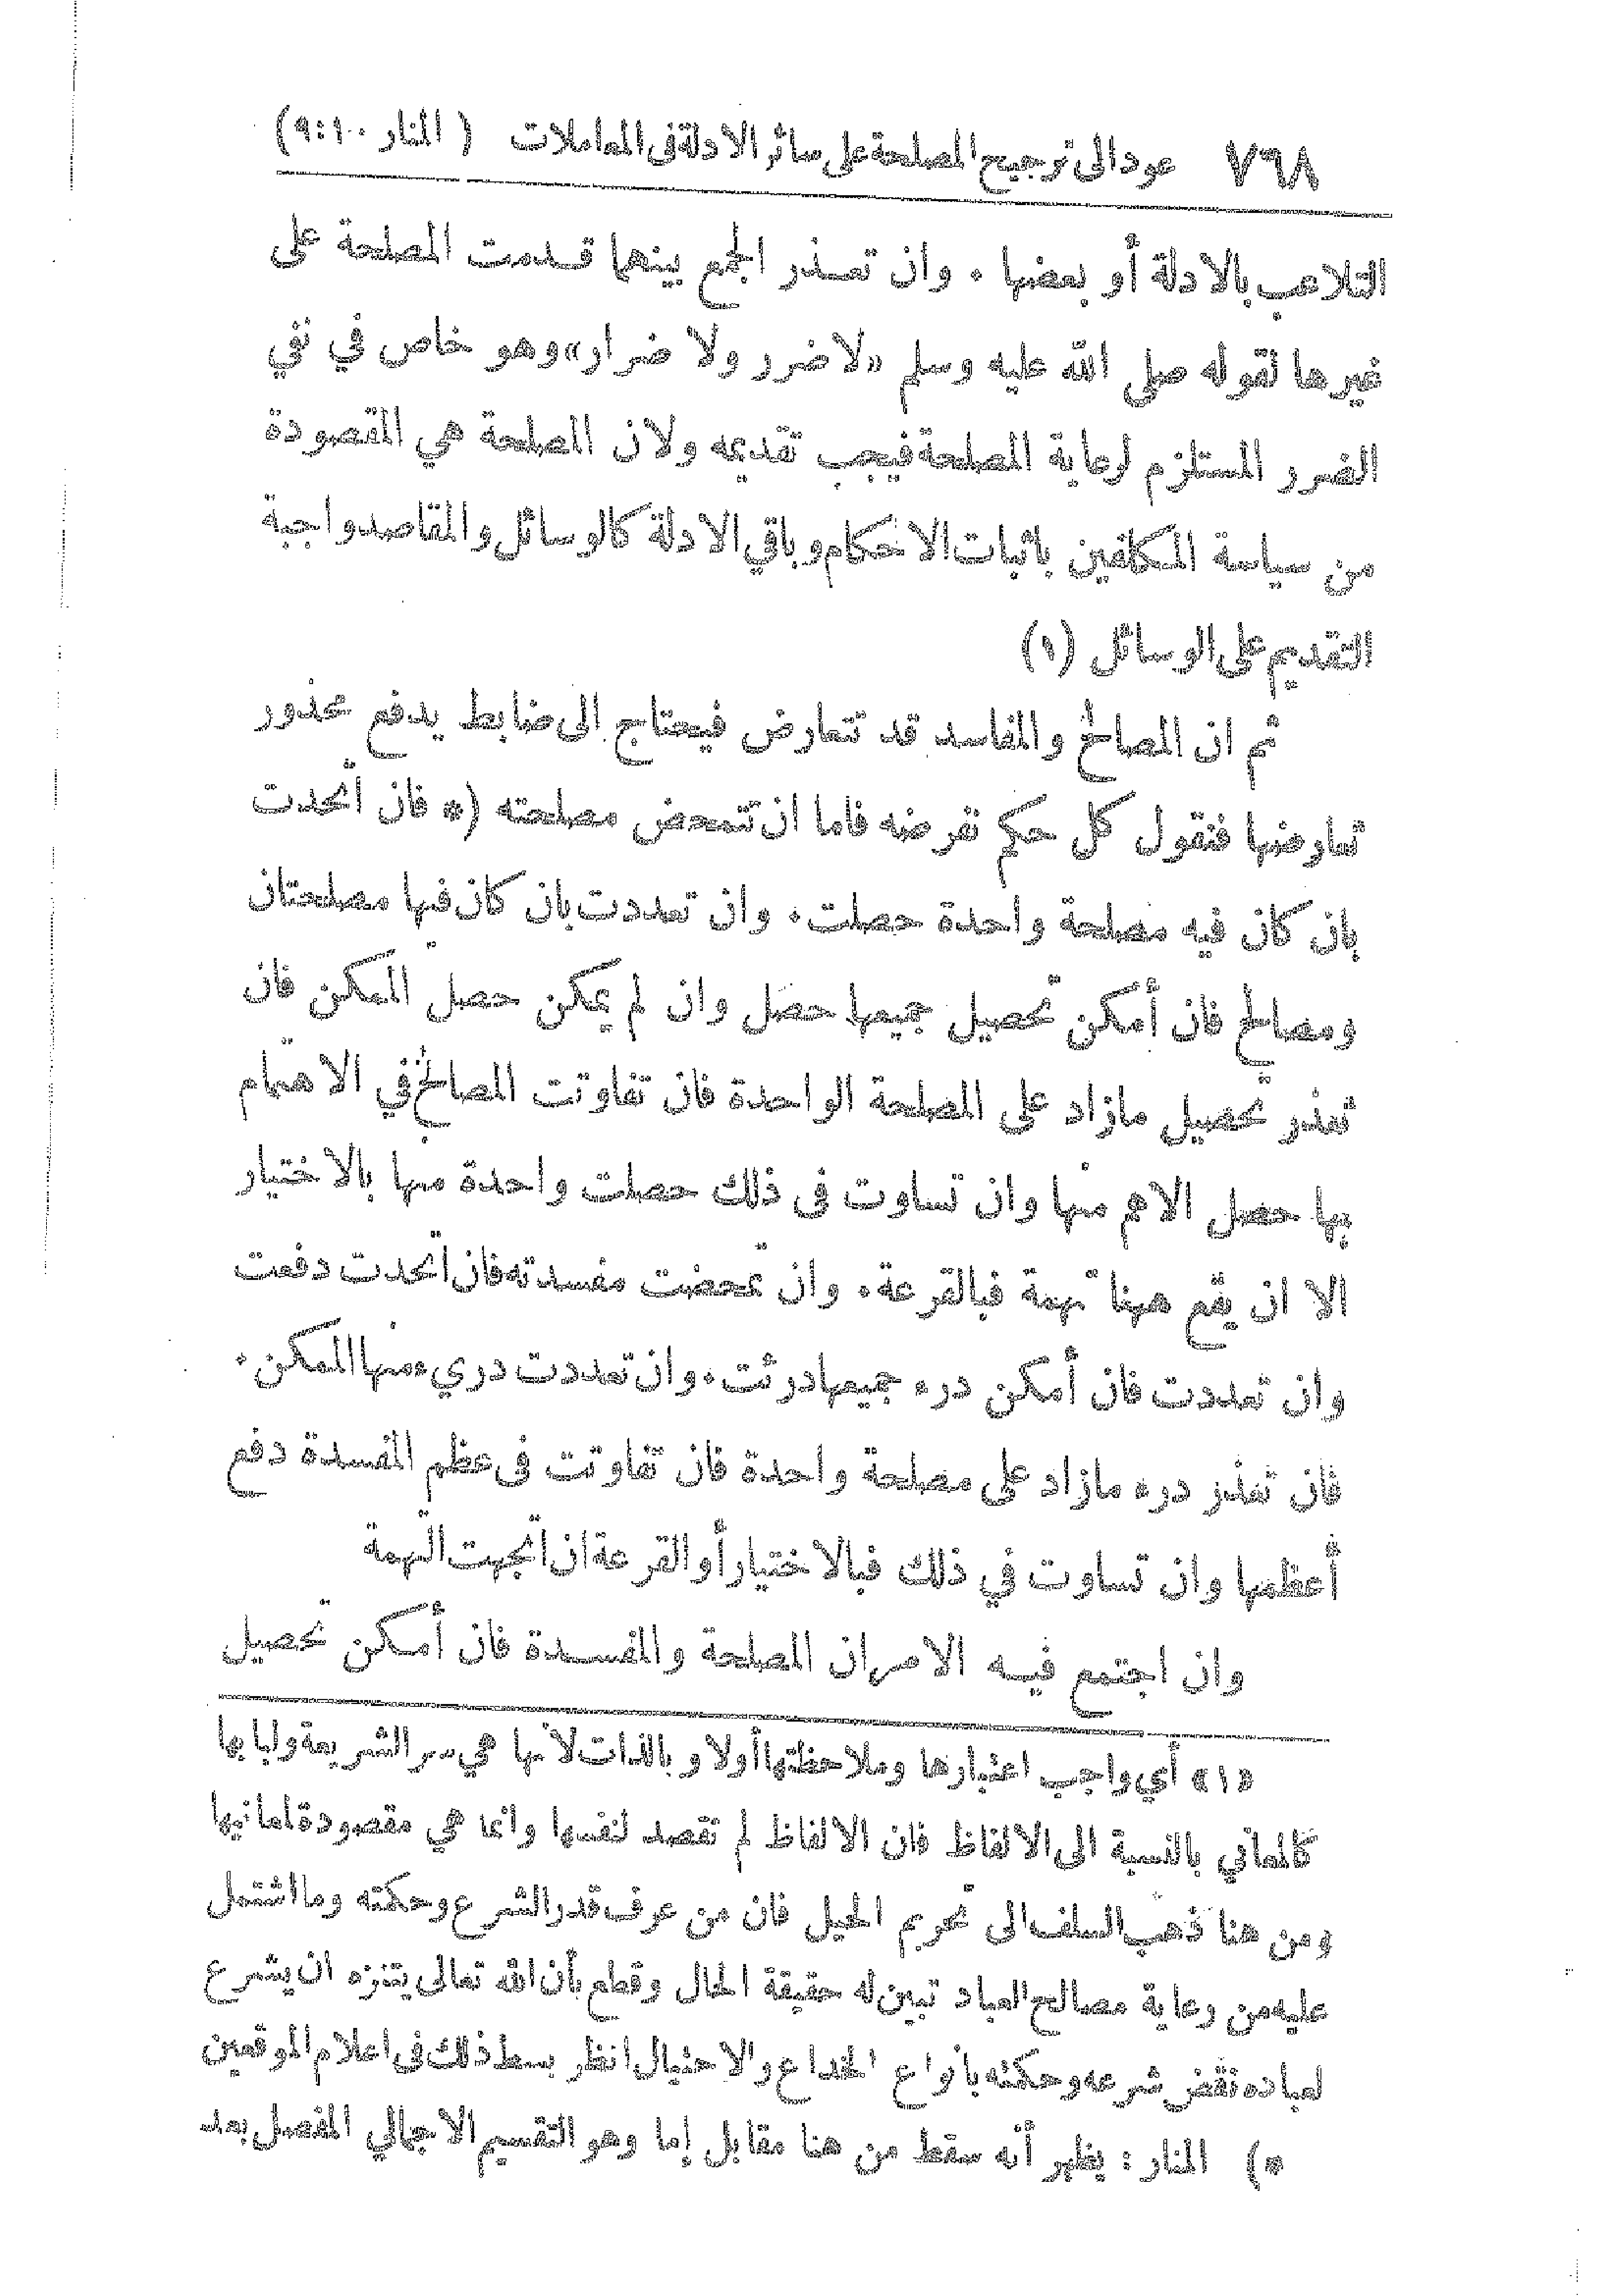 ٧٦٨ عود الى ترجيح المصلحة على سائر الادلة في المعاملات ( المنار ١٠ : ٩)
التلاعب بالادلة أو بعضها . وان تعذر الجمع بينهما قدمت المصلحة على
غيرها لقوله صلى الله عليه وسلم «لا ضرر ولا ضرار» وهو خاص في نفي
الضرر المستلزم لرعاية المصلحة فيجب تقديمه ولان المصلحة هي المقصودة
من سياسة المكلفين باثبات الاحكام وباقي الادلة كالوسائل والمقاصد واجبة
التقديم على الوسائل (١)
ثم ان المصالح والمفاسد قد تتعارض فيحتاج الى ضابط يدفع محذور
تعارضها فنقول كل حكم نفرضه فاما ان تتمحض مصلحته (* فان أتحدت
بان كان فيه مصلحة واحدة حصلت . وان تعددت بان كان فيها مصلحتان
ومصالح فان أمكن تحصيل جميعها حصل وان لم يمكن حصل الممكن فان
تعذر تحصيل مازاد على المصلحة الواحدة فان تفاوتت المصالح في الاهتمام
بها حصل الاهم منها وان تساوت في ذلك حصلت واحدة منها بالاختيار
الا ان يقع ههنا تهمة فبالقرعة . وان تمحضت مفسدته فان أتحدت دفعت
وان تعددت فان أمكن درء جميعها درئت . وان تعددت دريء منها الممكن .
فان تعذر درء مازاد على مصلحة واحدة فان تفاوتت في عظم المفسدة دفع
أعظمها وان تساوت في ذلك فبالاختيار أو القرعة ان اتجهت التهمة
وان اجتمع فيه الامران المصلحة والمفسدة فان أمكن تحصيل
«١» أي واجب اعتبارها وملاحظتها أولا وبالذات لأنها هي سر الشريعة ولبابها
كالمعاني بالنسبة الى الالفاظ فان الالفاظ لم تقصد لنفسها وانما هي مقصودة لمعانيها
ومن هنا ذهب السلف الى تحريم الحيل فان من عرف قدر الشرع وحكمته وما اشتمل
عليه من رعاية مصالح العباد تبين له حقيقة الحال وقطع بأن الله تعالى يتنزه ان يشرع
لعباده نقض شرعه وحكمته بانواع الخداع والاحتيال انظر بسط ذلك في اعلام الموقعين
*) المنار : يظهر أنه سقط من هنا مقابل إما وهو التقسيم الاجمالي المفصل بعد